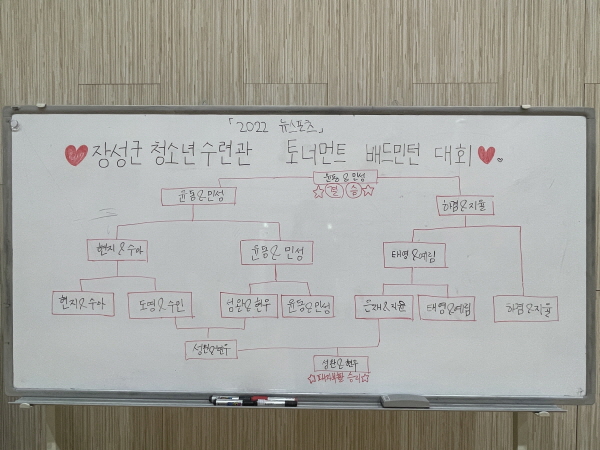 「2022 뉴스포츠」
장성군 청소년 수련관 토너먼트 배드민턴 대회
윤동&민성
☆결승☆
윤동&민성
하겸&지율
현지&수아
윤동&민성
태영&예림
현지&수아
도영&수민
성완&현우
윤동&민성
든재&지율
태영&예림
하겸&지율
성완&현우
성완&현우
☆패자부활 승리☆